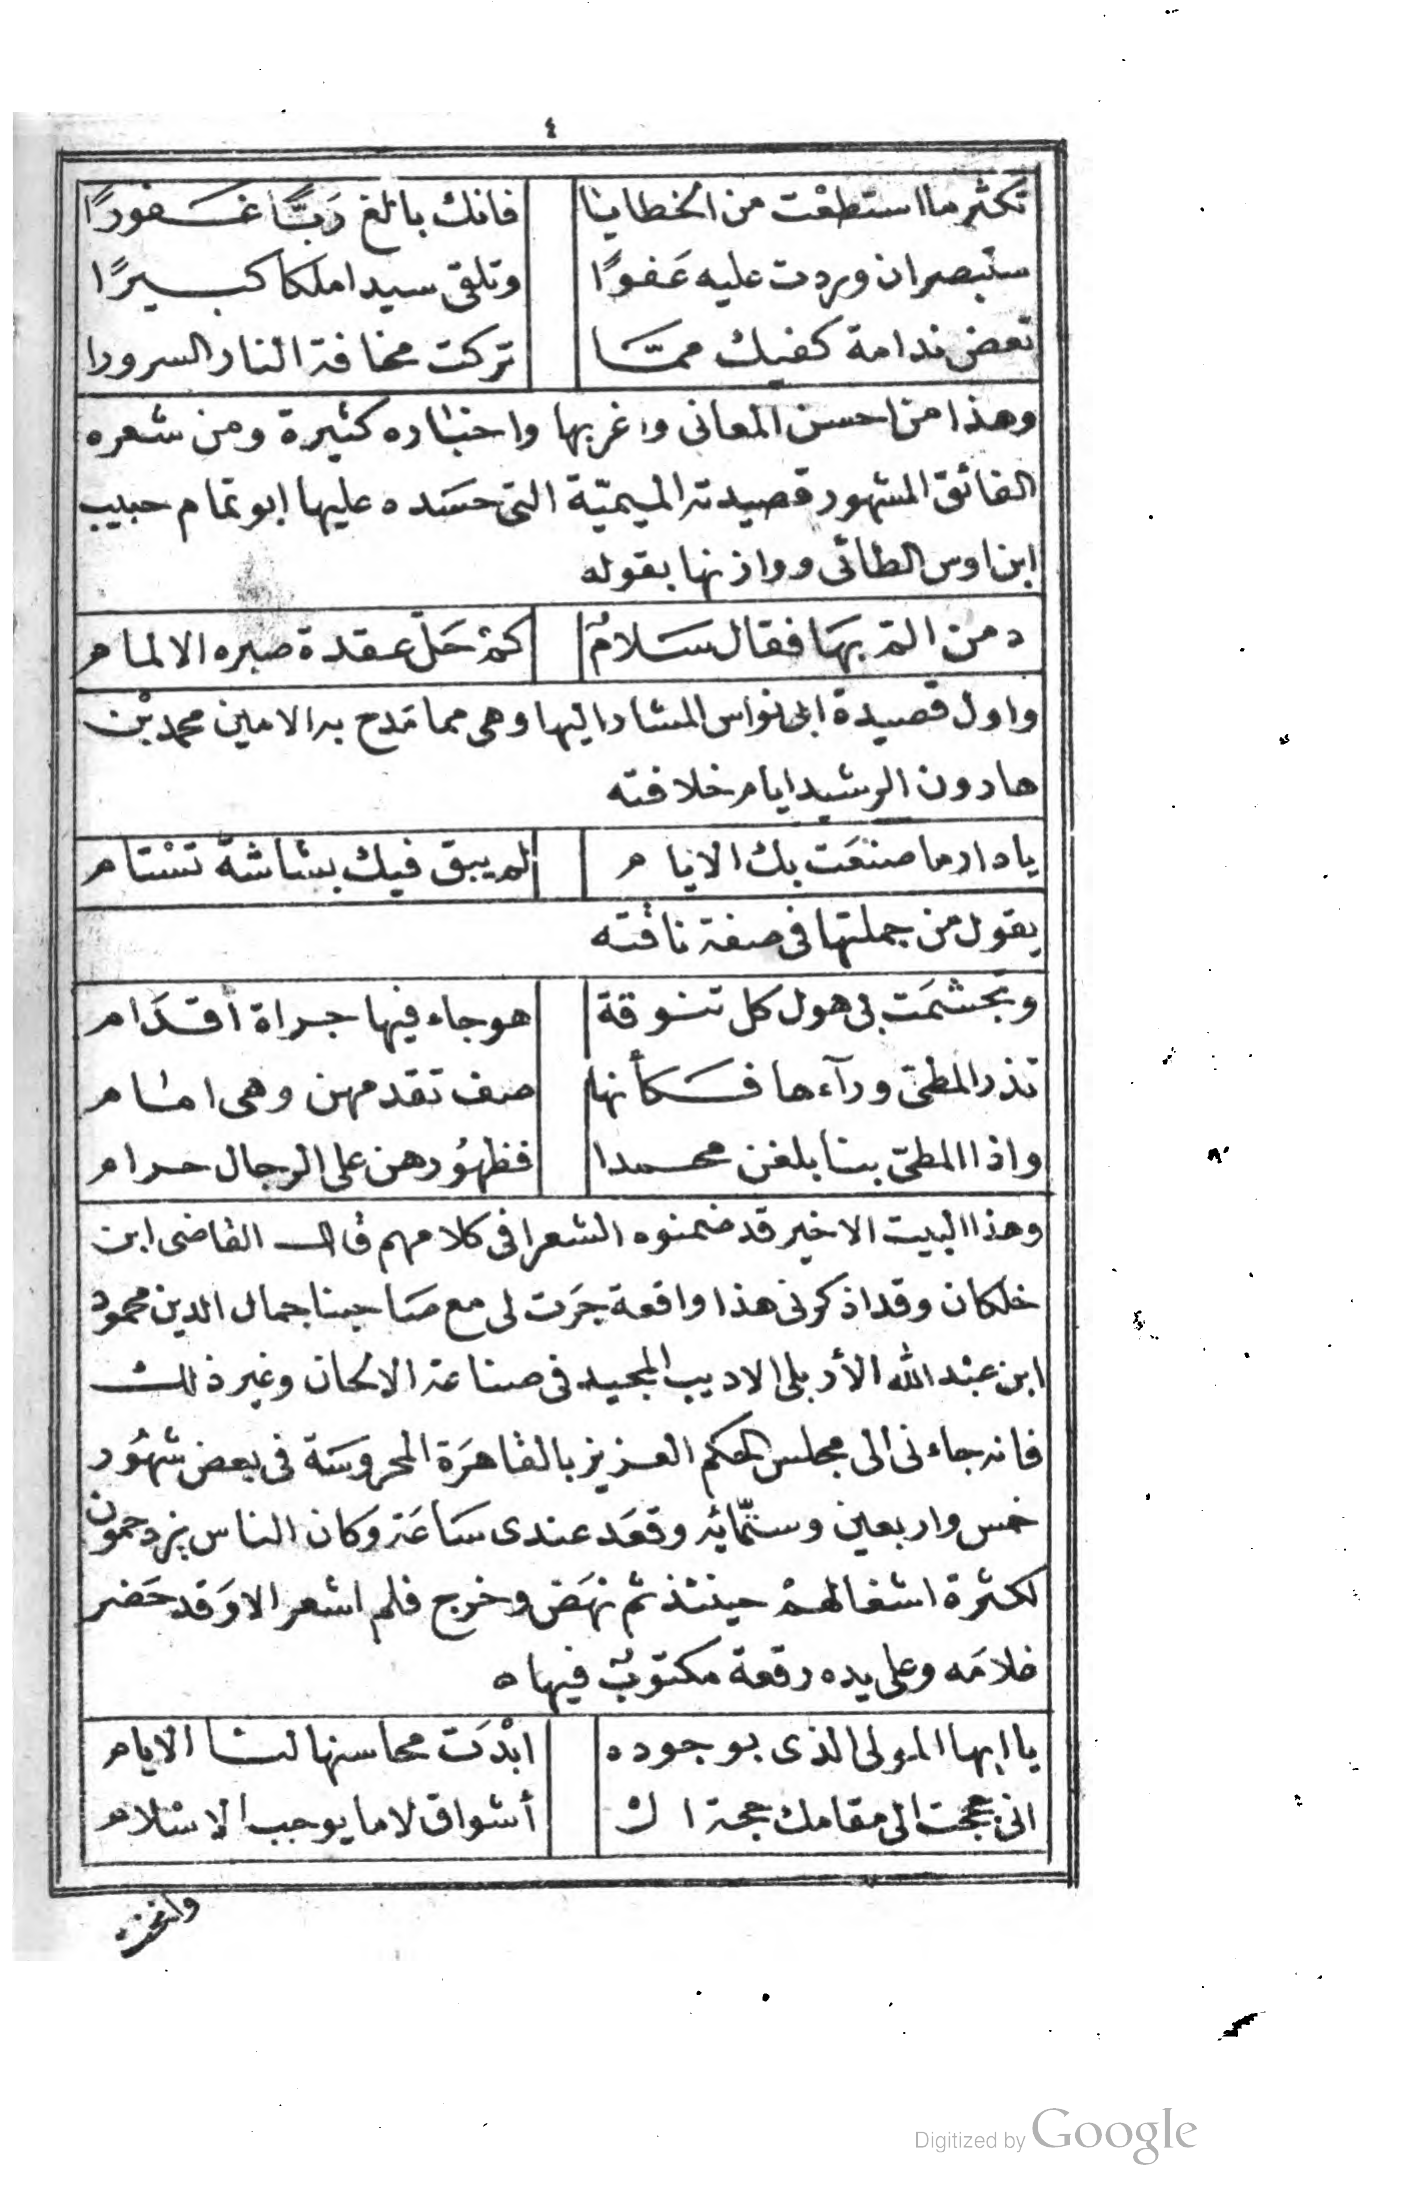 ٤
تكثر ما استطعْت من الخطايا فانك بالغ رَبًّا غَفورًا
ستبصر ان وردت عليه عَفوًا وتلقى سيدا ملكا كبيرًا
تعض ندامة كفيك ممّا تركت مخافة النار السرورا
وهذا من احسن المعانى واغربها واخباره كثيرة ومن شعره
الفائق المشهور قصيدته الميميّة التى حسَده عليها ابو تمام حبيب
ابن اوس الطائى ووازنها بقوله
دمن المّ بهَا فقال سَلامُ كمْ حَلّ عقدة صبره الالمام
واول قصيدة ابى نواس المشار اليها وهى مما مَدح به الامين محمد بْن
هارون الرشيد ايام خلافته
يا دار ما صنعَت بك الايام لم يبق فيك بشاشة تسْتام
يقول من جملتها فى صفة ناقته
وتجشمَت بى هول كل تنوقة هوجاء فيها جراة أقدَام
تذر المطىّ ورآءها فكأنها صف تقدمهن وهى امام
واذا المطىّ بنا بلغن محمدا فظهُورهن على الرجال حرام
وهذا البيت الاخير قد ضمنوه الشعرا فى كلامهم قال القاضى ابن
خلكان وقد اذكرنى هذا واقعة جرَت لى مع صَاحبنا جمال الدين محمود
ابن عبْد الله الأربلى الاديب المجيد فى صناعة الالحان وغير ذلك
فانه جاءنى الى مجلس الحكم العزيز بالقاهرَة المحروسَة فى بعض شهُور
خمس واربعين وستّمائه وقعَد عندى سَاعَة وكان الناس يزدحمون
لكثرة اشغالهمْ حينئذ ثم نهَض وخرج فلم اشعر الا وَقد حَضر
غلامَه وعلى يده رقعة مكتوبٌ فيها ه
يا ايها المولى الذى بوجوده ابْدَت محاسنها لنا الايام
انى حججت الى مقامك حجة ال أشواق لا ما يوجب الاسْلام
وانخت
Digitized by Google